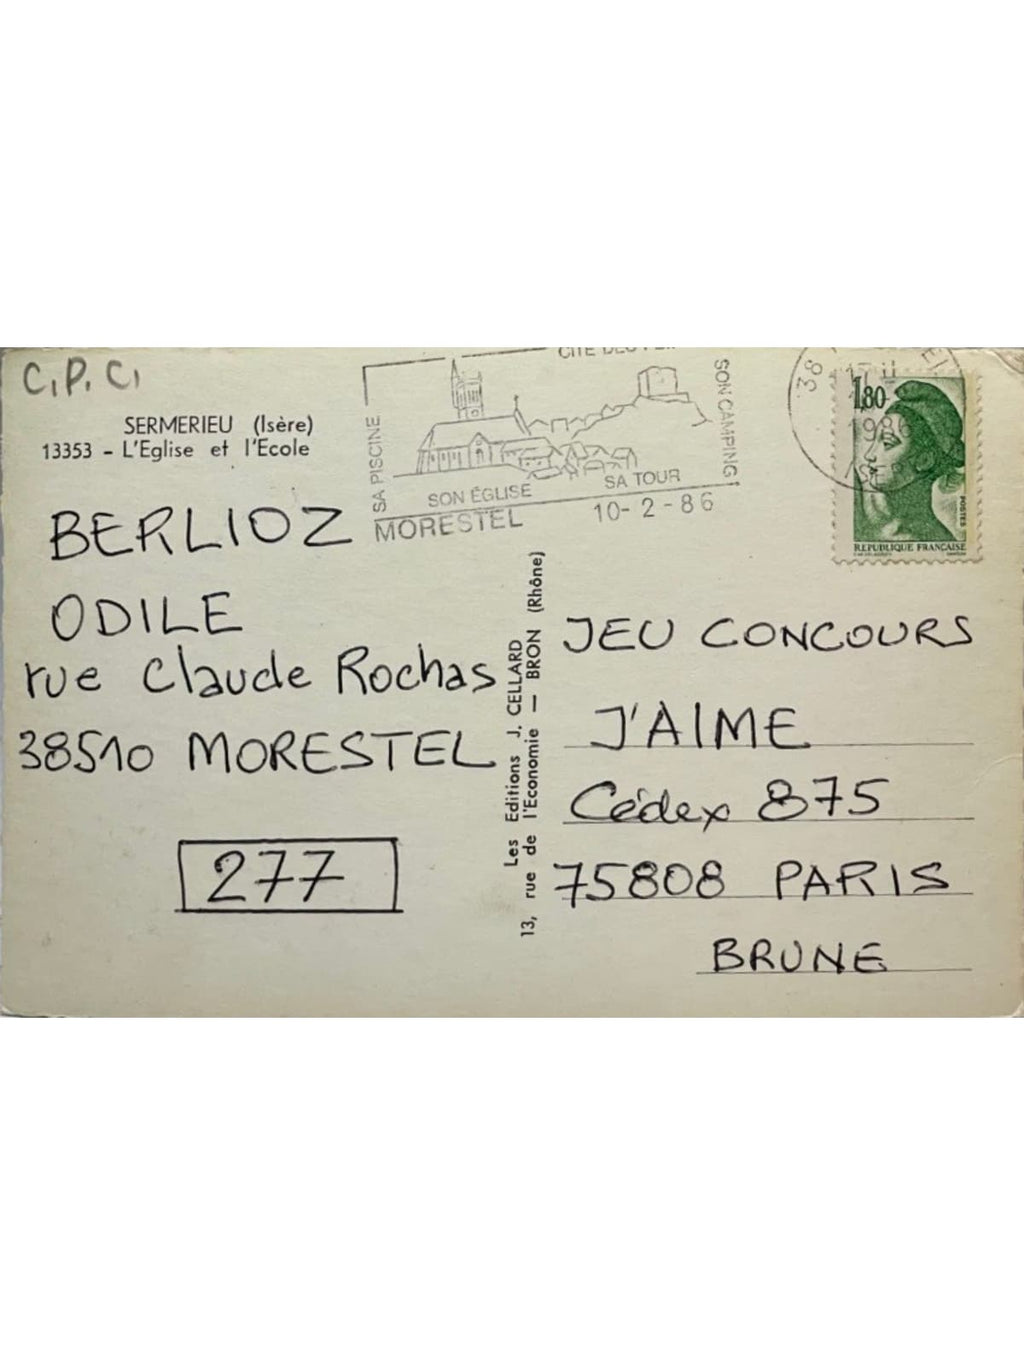 C.P.C.
SERMERIEU (Isère)
13353 - L'Eglise et l'Ecole
BERLIOZ
ODILE
rue Claude Rochas
38510 MORESTEL
277
CITE DES
SA PISCINE
SON CAMPING
SON ÉGLISE
SA TOUR
MORESTEL
10-2-86
38
1986
1,80
POSTES
REPUBLIQUE FRANÇAISE
Les Editions J. CELLARD
13, rue de l'Economie — BRON (Rhône)
JEU CONCOURS
J'AIME
Cédex 875
75808 PARIS
BRUNE